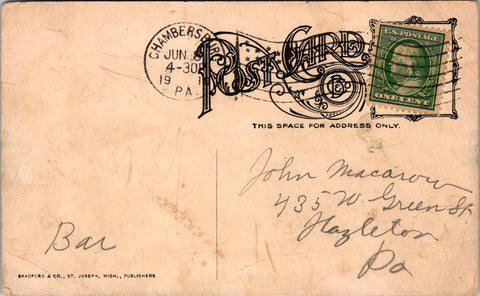 CHAMBERSBURG
JUN
4-30P
19 1
PA.
POST CARD
U.S. POSTAGE
ONE CENT
THIS SPACE FOR ADDRESS ONLY.
John Macarow
435 W. Green St
Hazleton
Pa
Bar
BRADFORD & CO., ST. JOSEPH, MICH., PUBLISHERS